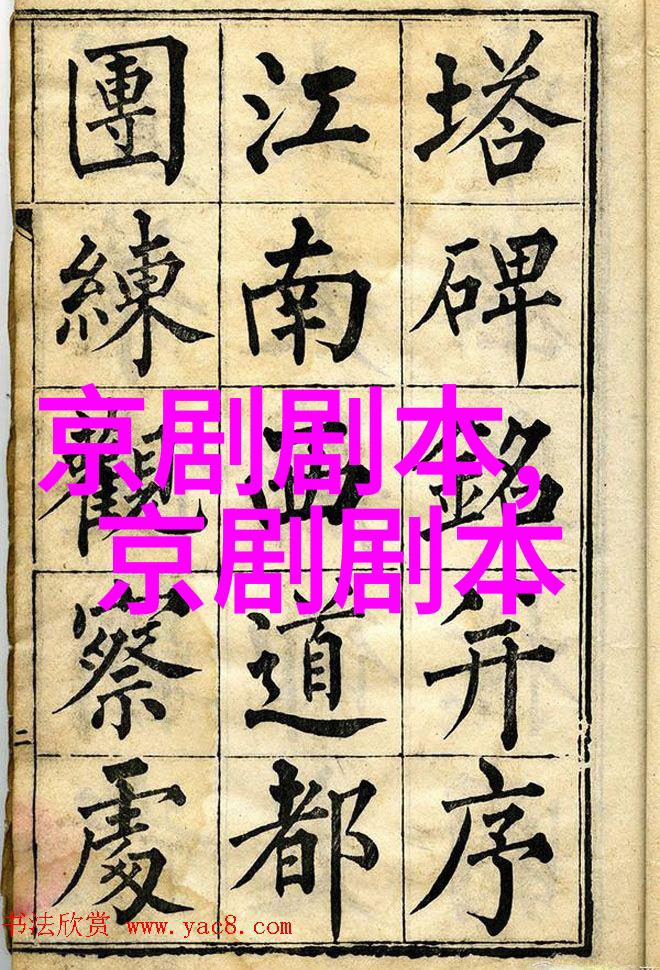 塔碑銘并序
江南西道都
團練觀察處
京剧剧本,
京剧剧本
二
书法欣赏 www.yac8.com